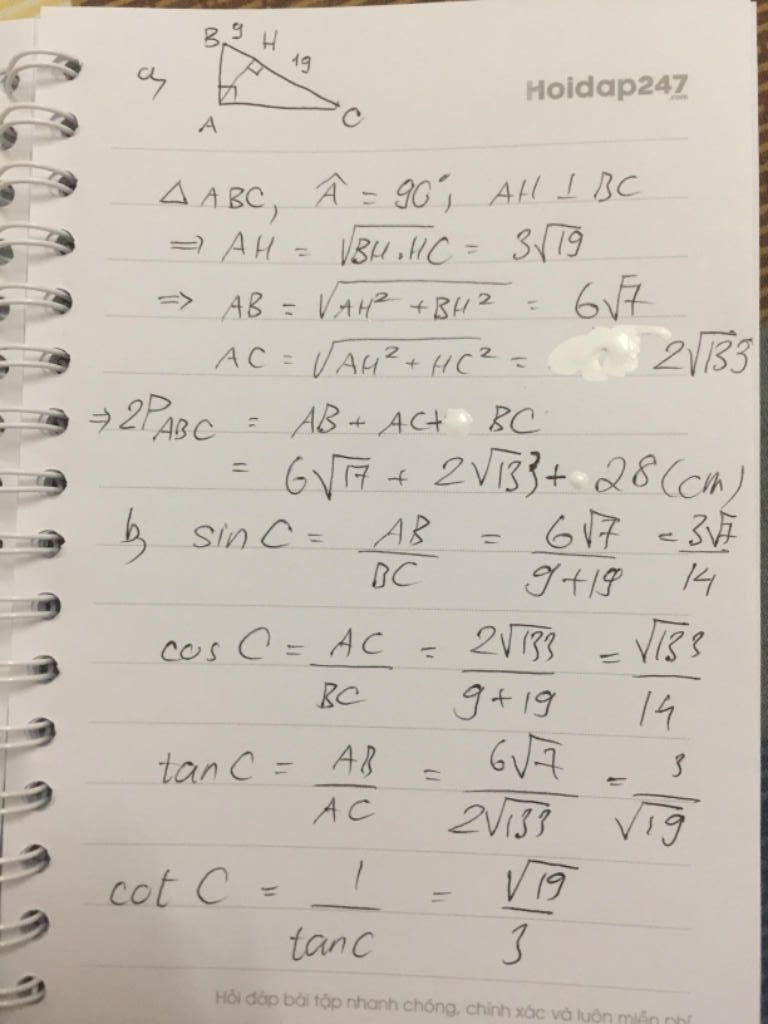 B 9 H
a, 19
Hoidap247
.com
A C
△ ABC, Â = 90°, AH ⊥ BC
=> AH = √BH.HC = 3√19
=> AB = √AH² + BH² = 6√7
AC = √AH² + HC² = 2√133
=> 2P_ABC = AB + AC + BC
= 6√17 + 2√133 + 28 (cm)
b, sin C = AB/BC = 6√7/9+19 = 3√7/14
cos C = AC/BC = 2√133/9+19 = √133/14
tan C = AB/AC = 6√7/2√133 = 3/√19
cot C = 1/tan C = √19/3
Hỏi đáp bài tập nhanh chóng, chính xác và luôn miễn phí